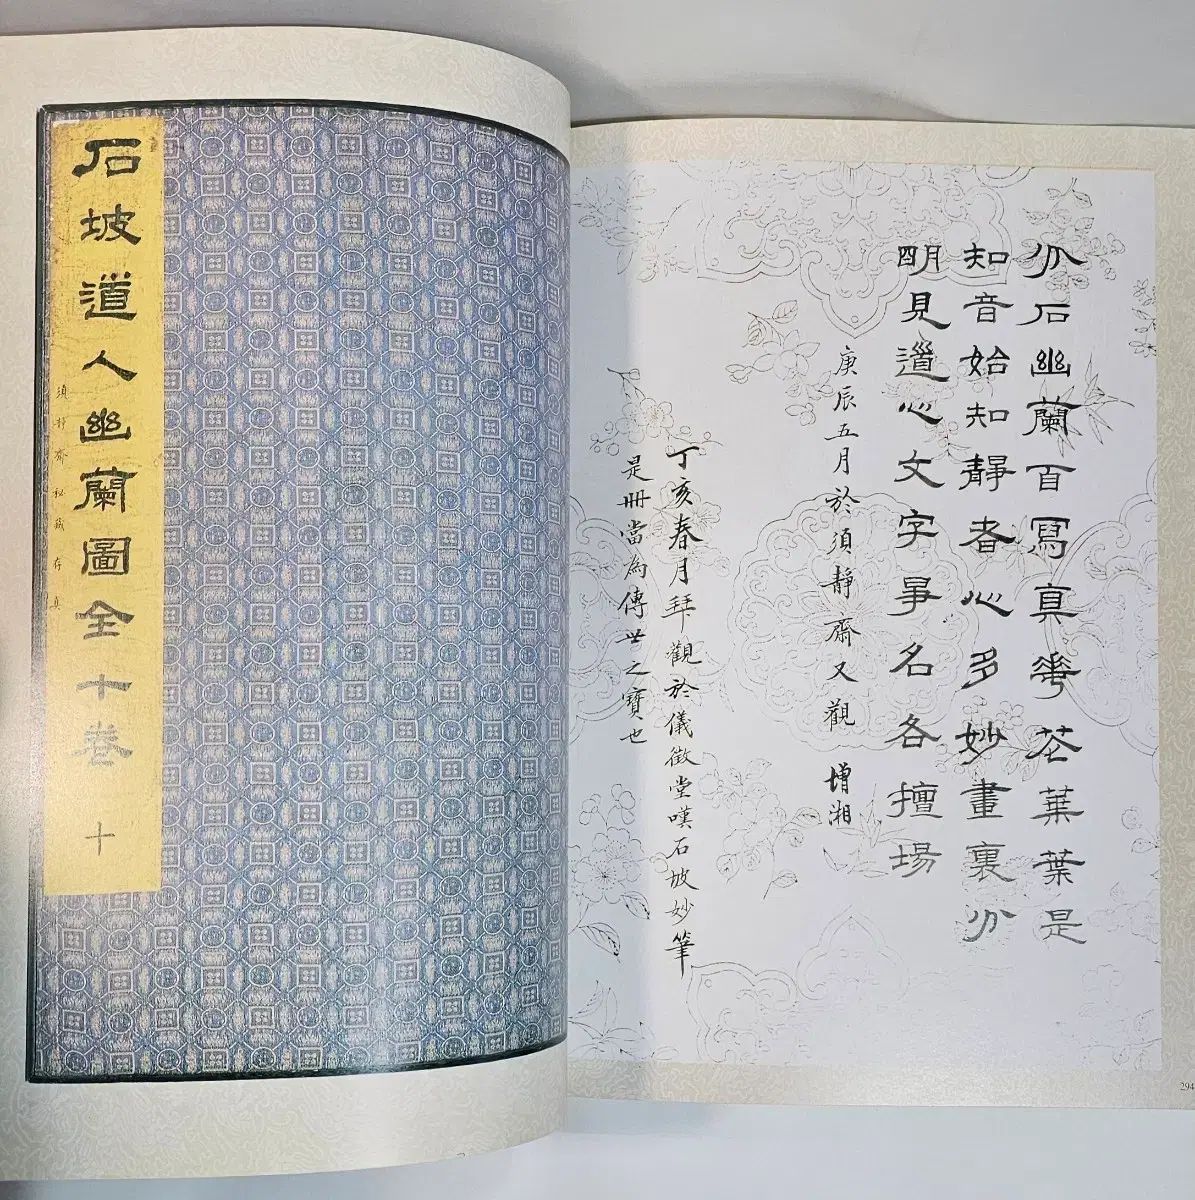 石坡道人幽蘭圖全十卷 十
須靜齋秘藏存真
介石幽蘭百寫真華花葉葉是
知音始知靜者心多妙畫裏分
明見道心文字名各擅場
庚辰五月於須靜齋又觀 增湘
丁亥春月拜觀於儀徵堂嘆石坡妙筆
是冊當為傳世之寶也
294